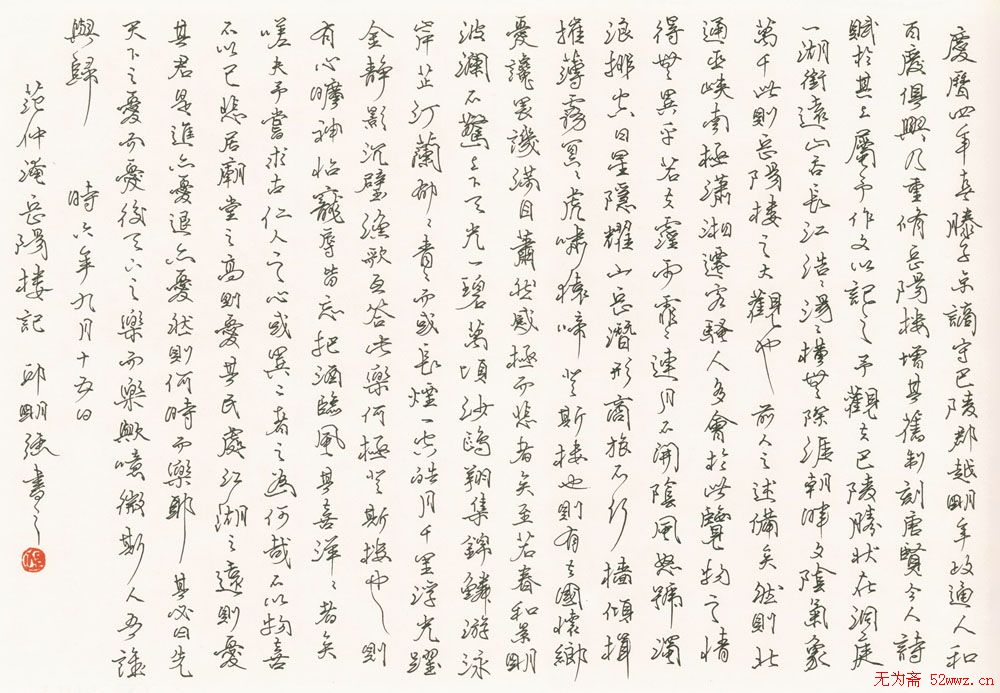 慶曆四年春滕子京謫守巴陵郡越明年政通人和
百廢俱興乃重脩岳陽樓增其舊制刻唐賢今人詩
賦於其上屬予作文以記之予觀夫巴陵勝狀在洞庭
一湖銜遠山吞長江浩〻湯〻橫無際涯朝暉夕陰氣象
萬千此則岳陽樓之大觀也前人之述備矣然則北
通巫峽南極瀟湘遷客騷人多會於此覽物之情
得無異乎若夫霪雨霏〻連月不開陰風怒號濁
浪排空日星隱耀山岳潛形商旅不行檣傾楫
摧薄霧冥〻虎嘯猿啼登斯樓也則有去國懷鄉
憂讒畏譏滿目蕭然感極而悲者矣至若春和景明
波瀾不驚上下天光一碧萬頃沙鷗翔集錦鱗游泳
岸芷汀蘭郁〻青〻而或長煙一空皓月千里浮光躍
金靜影沉璧漁歌互答此樂何極登斯樓也則
有心曠神怡寵辱皆忘把酒臨風其喜洋〻者矣
嗟夫予嘗求古仁人之心或異二者之為何哉不以物喜
不以己悲居廟堂之高則憂其民處江湖之遠則憂
其君是進亦憂退亦憂然則何時而樂耶其必曰先
天下之憂而憂後天下之樂而樂歟噫微斯人吾誰
與歸 時六年九月十五日
范仲淹岳陽樓記 邱明強書之
无为斋 52wwz.cn